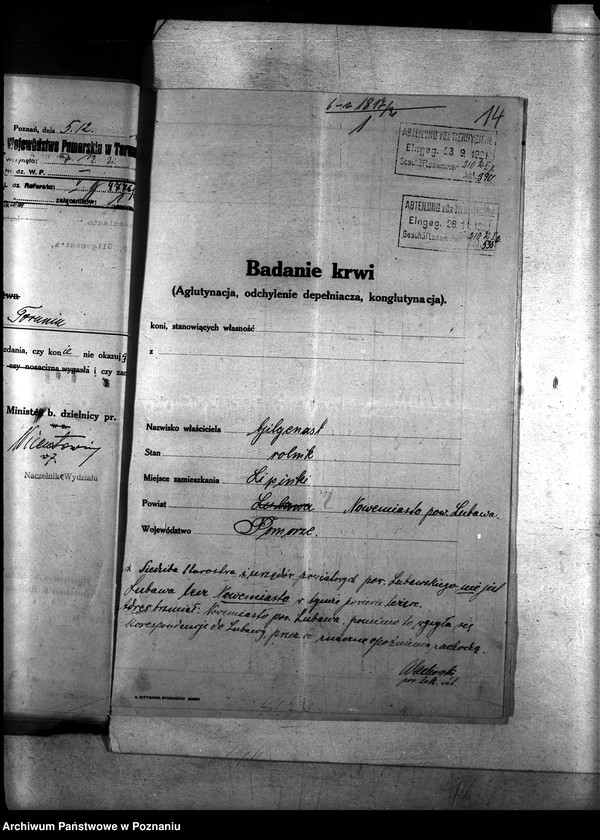 Poznań, dnia 5.12.
Województwo Pomorskie w Toru
oz. W. P.
oz. Referatu
załączników
Toruniu
zdania, czy konie nie okazują
czy nosacizna wygasła i czy zar
Minister b. dzielnicy pr.
w z.
Naczelnik Wydziału
14
1
Eingeg. 23. 9. 1921
Geschäftsnummer
ABTEILUNG FÜR
Eingeg. 26
Geschäftsnummer
Badanie krwi
(Aglutynacja, odchylenie depełniacza, konglutynacja).
koni, stanowiących własność
z
Nazwisko właściciela Gilgenast
Stan rolnik
Miejsce zamieszkania Lipinki
Powiat Lubawa Nowemiasto pow. Lubawa.
Województwo Pomorze.
Siedziba Starostwa i urzędów powiatowych pow. Lubawskiego nie jest
Lubawa lecz Nowemiasto w tymże powiecie leżące.
Adres brzmiał: Nowemiasto pow. Lubawa. pomimo to wysyła się
korespondencje do Lubawy, przez co znaczne opóźnienia zachodzą.
pow. lek. wet.
A. DITTMANN, BYDGOSZCZ
Archiwum Państwowe w Poznaniu